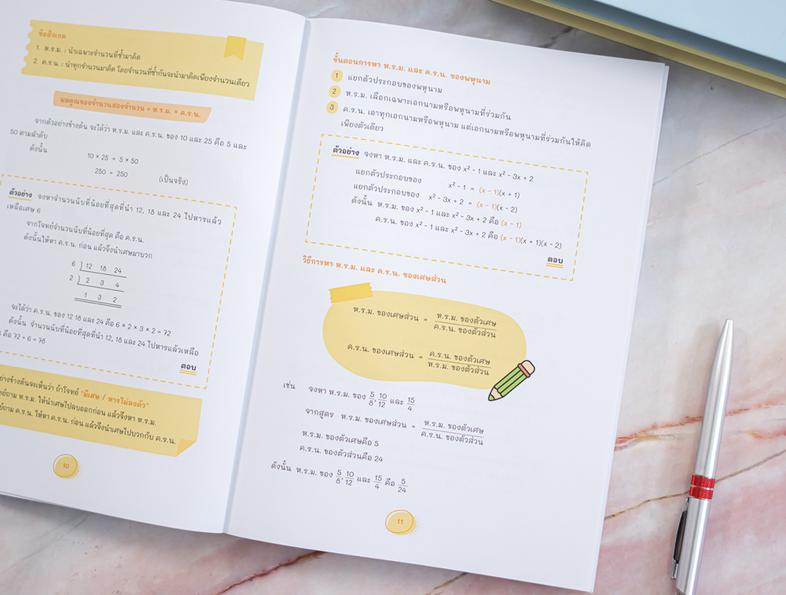 ข้อสังเกต
1. ห.ร.ม. : นำเฉพาะจำนวนที่ซ้ำมาคิด
2. ค.ร.น. : นำทุกจำนวนมาคิด โดยจำนวนที่ซ้ำกันจะนำมาคิดเพียงจำนวนเดียว
ผลคูณของจำนวนสองจำนวน = ห.ร.ม. × ค.ร.น.
จากตัวอย่างข้างต้น จะได้ว่า ห.ร.ม. และ ค.ร.น. ของ 10 และ 25 คือ 5 และ
50 ตามลำดับ
ดังนั้น
10 × 25 = 5 × 50
250 = 250 (เป็นจริง)
ตัวอย่าง จงหาจำนวนนับที่น้อยที่สุดที่นำ 12, 18 และ 24 ไปหารแล้ว
เหลือเศษ 6
จากโจทย์จำนวนนับที่น้อยที่สุด คือ ค.ร.น.
ดังนั้นให้หา ค.ร.น. ก่อน แล้วจึงนำเศษมาบวก
6 12 18 24
2 2 3 4
1 3 2
จะได้ว่า ค.ร.น. ของ 12 18 และ 24 คือ 6 × 2 × 3 × 2 = 72
ดังนั้น จำนวนนับที่น้อยที่สุดที่นำ 12, 18 และ 24 ไปหารแล้วเหลือ
คือ 72 + 6 = 78
ตอบ
ข้างต้นจะเห็นว่า ถ้าโจทย์ "มีเศษ / หารไม่ลงตัว"
ถาม ห.ร.ม. ให้นำเศษไปลบออกก่อน แล้วจึงหา ห.ร.ม.
ถาม ค.ร.น. ให้หา ค.ร.น. ก่อน แล้วจึงนำเศษไปบวกกับ ค.ร.น.
10
ขั้นตอนการหา ห.ร.ม. และ ค.ร.น. ของพหุนาม
1 แยกตัวประกอบของพหุนาม
2 ห.ร.ม. เลือกเฉพาะเอกนามหรือพหุนามที่ร่วมกัน
3 ค.ร.น. เอาทุกเอกนามหรือพหุนาม แต่เอกนามหรือพหุนามที่ร่วมกันให้คิด
เพียงตัวเดียว
ตัวอย่าง จงหา ห.ร.ม. และ ค.ร.น. ของ x² - 1 และ x² - 3x + 2
แยกตัวประกอบของ x² - 1 = (x - 1)(x + 1)
แยกตัวประกอบของ x² - 3x + 2 = (x - 1)(x - 2)
ดังนั้น ห.ร.ม. ของ x² - 1 และ x² - 3x + 2 คือ (x - 1)
ค.ร.น. ของ x² - 1 และ x² - 3x + 2 คือ (x - 1)(x + 1)(x - 2)
ตอบ
วิธีการหา ห.ร.ม. และ ค.ร.น. ของเศษส่วน
ห.ร.ม. ของเศษส่วน = ห.ร.ม. ของตัวเศษ
ค.ร.น. ของตัวส่วน
ค.ร.น. ของเศษส่วน = ค.ร.น. ของตัวเศษ
ห.ร.ม. ของตัวส่วน
เช่น จงหา ห.ร.ม. ของ 5/8, 10/12 และ 15/4
จากสูตร ห.ร.ม. ของเศษส่วน = ห.ร.ม. ของตัวเศษ
ค.ร.น. ของตัวส่วน
ห.ร.ม. ของตัวเศษคือ 5
ค.ร.น. ของตัวส่วนคือ 24
ดังนั้น ห.ร.ม. ของ 5/8, 10/12 และ 15/4 คือ 5/24
11